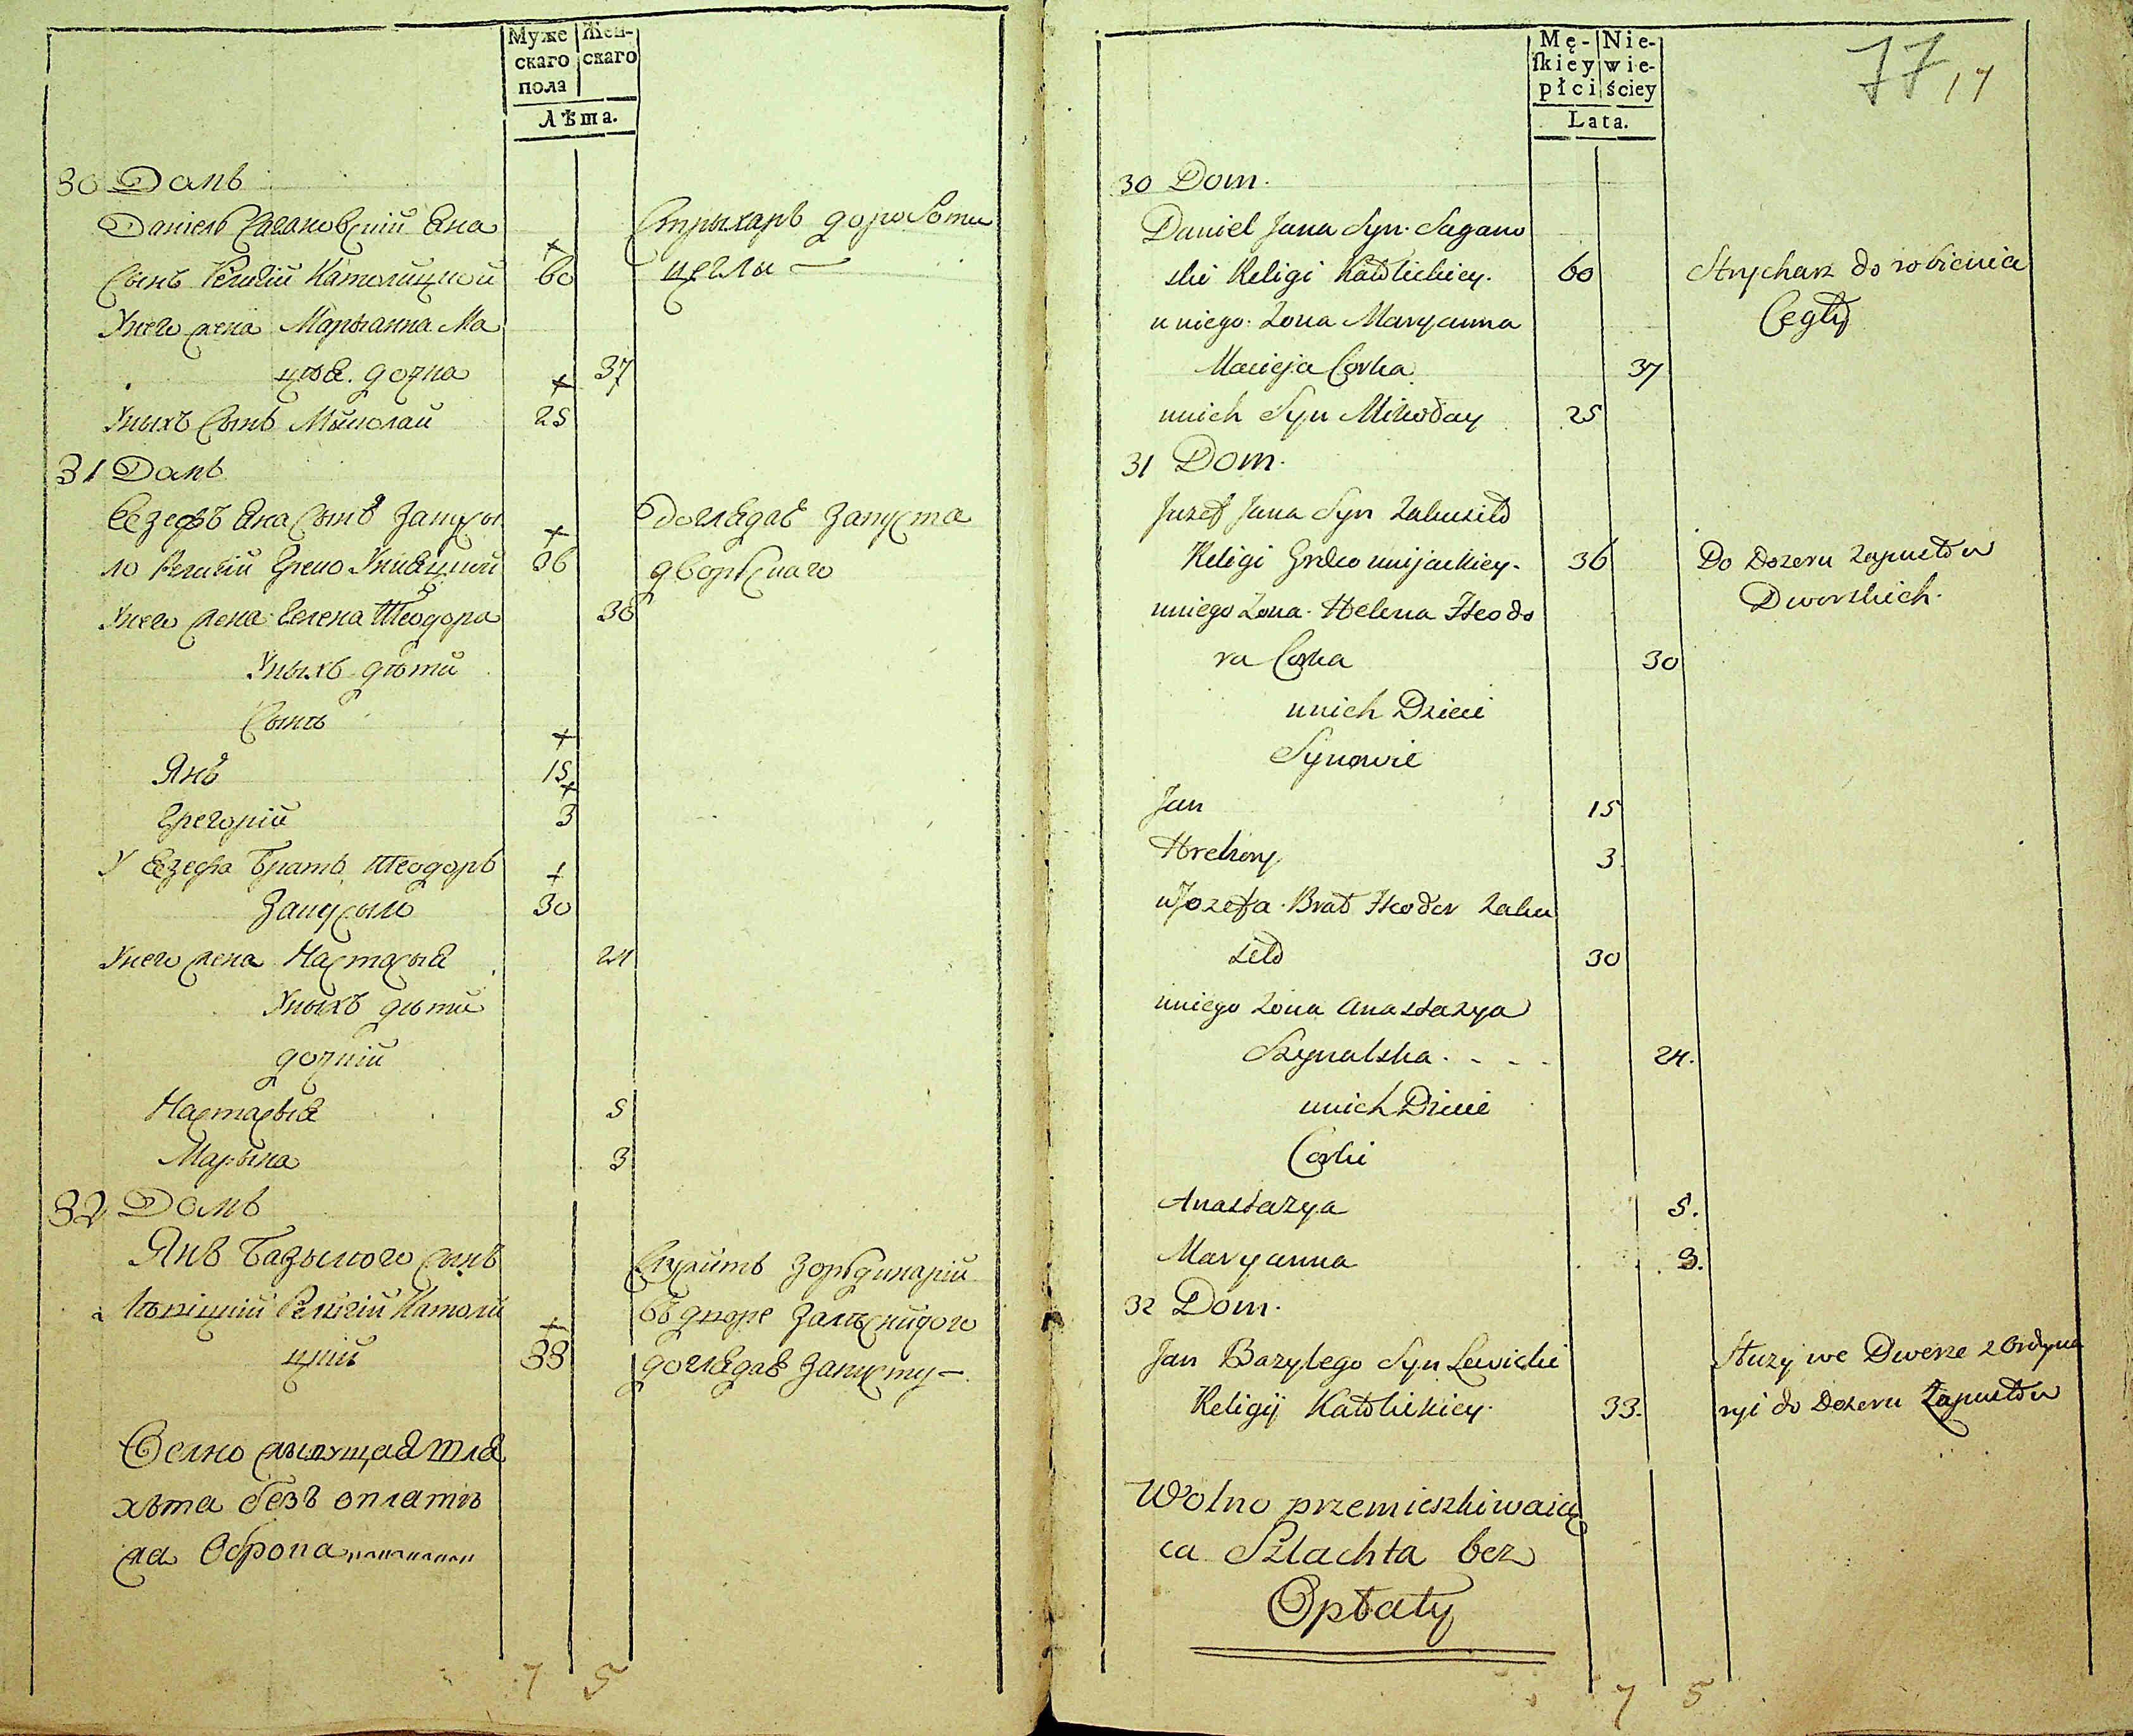 Муже Жен-
скаго скаго
пола
Лѣта.
30 Домъ
Даніель Сагановскій Яна
Сынъ Религіи Католицкой 60
Стрыхаръ до роботи
цеглы
У него жена Марыанна Ма
цѣя дочка 37
У ныхъ Сынъ Мыколай 25
31 Домъ
Езефъ Яна Сынъ
ло Религіи Греко Уніяцкой 36
догляда запуста
дворскаго
У него жена Елена Теодора 30
У ныхъ дѣти
Сынъ
Янъ 15
Грегорій 3
У Езефа Братъ Теодоръ
30
У него жена Настасыя 24
У ныхъ дѣти
дочки
Настасыя 5
Марына 3
32 Домъ
Янъ Базылого сынъ
Левіцкій Религіи Католи
цкій 33
Служитъ
въ дворе
догляда запусту
Волно Шля
хта безъ оплати
7 5
Mę- Nie-
ſkiey wie-
płci ściey
Lata.
77 17
30 Dom.
Daniel Jana Syn Sagano
ski Religi Katolickiey. 60
Strycharz do robienia
Cegły
u niego Zona Maryanna
Macieja Corka 37
u nich Syn Mikołay 25
31 Dom.
Juzef Jana Syn Zakusiło
Religi Greko unijackiey. 36
Do Dozeru Zapustow
Dworskich.
u niego Zona Helena Heodo
ra Corka 30
u nich Dzieci
Synowie
Jan 15
Hrehory 3.
u Jozefa Brat Heodor Zaku
siło 30
u niego Zona Anastazya
Szymalska 24.
u nich Dzieci
Corki
Anastazya 5.
Maryanna 3.
32 Dom.
Jan Bazylego Syn Lewicki
Religij Katolickiey. 33.
Służy we Dworze z Ordyna
ryi do Dozeru Zapustow
Wolno przemieszkiwaią
ca Szlachta bez
Opłaty
7 5